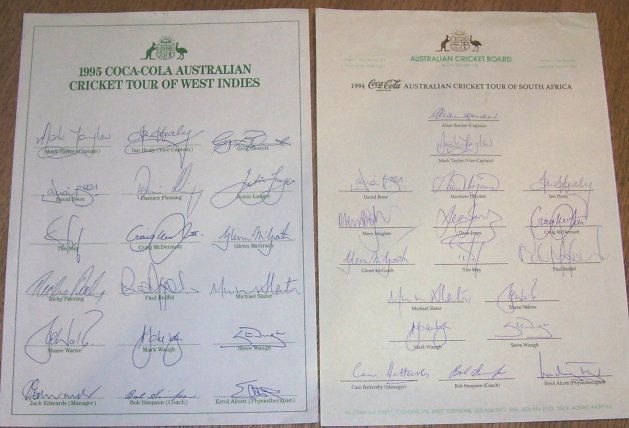 1995 COCA-COLA AUSTRALIAN
CRICKET TOUR OF WEST INDIES
Mark Taylor (Captain) Ian Healy (Vice Captain) Greg Blewett
David Boon Damien Fleming Justin Langer
Tim May Craig McDermott Glenn McGrath
Ricky Ponting Paul Reiffel Michael Slater
Shane Warne Mark Waugh Steve Waugh
Jack Edwards (Manager) Bob Simpson (Coach) Errol Alcott (Physiotherapist)
AUSTRALIAN CRICKET BOARD
1994 Coca-Cola AUSTRALIAN CRICKET TOUR OF SOUTH AFRICA
Allan Border (Captain)
Mark Taylor (Vice Captain)
David Boon Matthew Hayden Ian Healy
Merv Hughes Dean Jones Craig McDermott
Glenn McGrath Tim May Paul Reiffel
Michael Slater Shane Warne
Mark Waugh Steve Waugh
Cam Battersby (Manager) Bob Simpson (Coach) Errol Alcott (Physiotherapist)